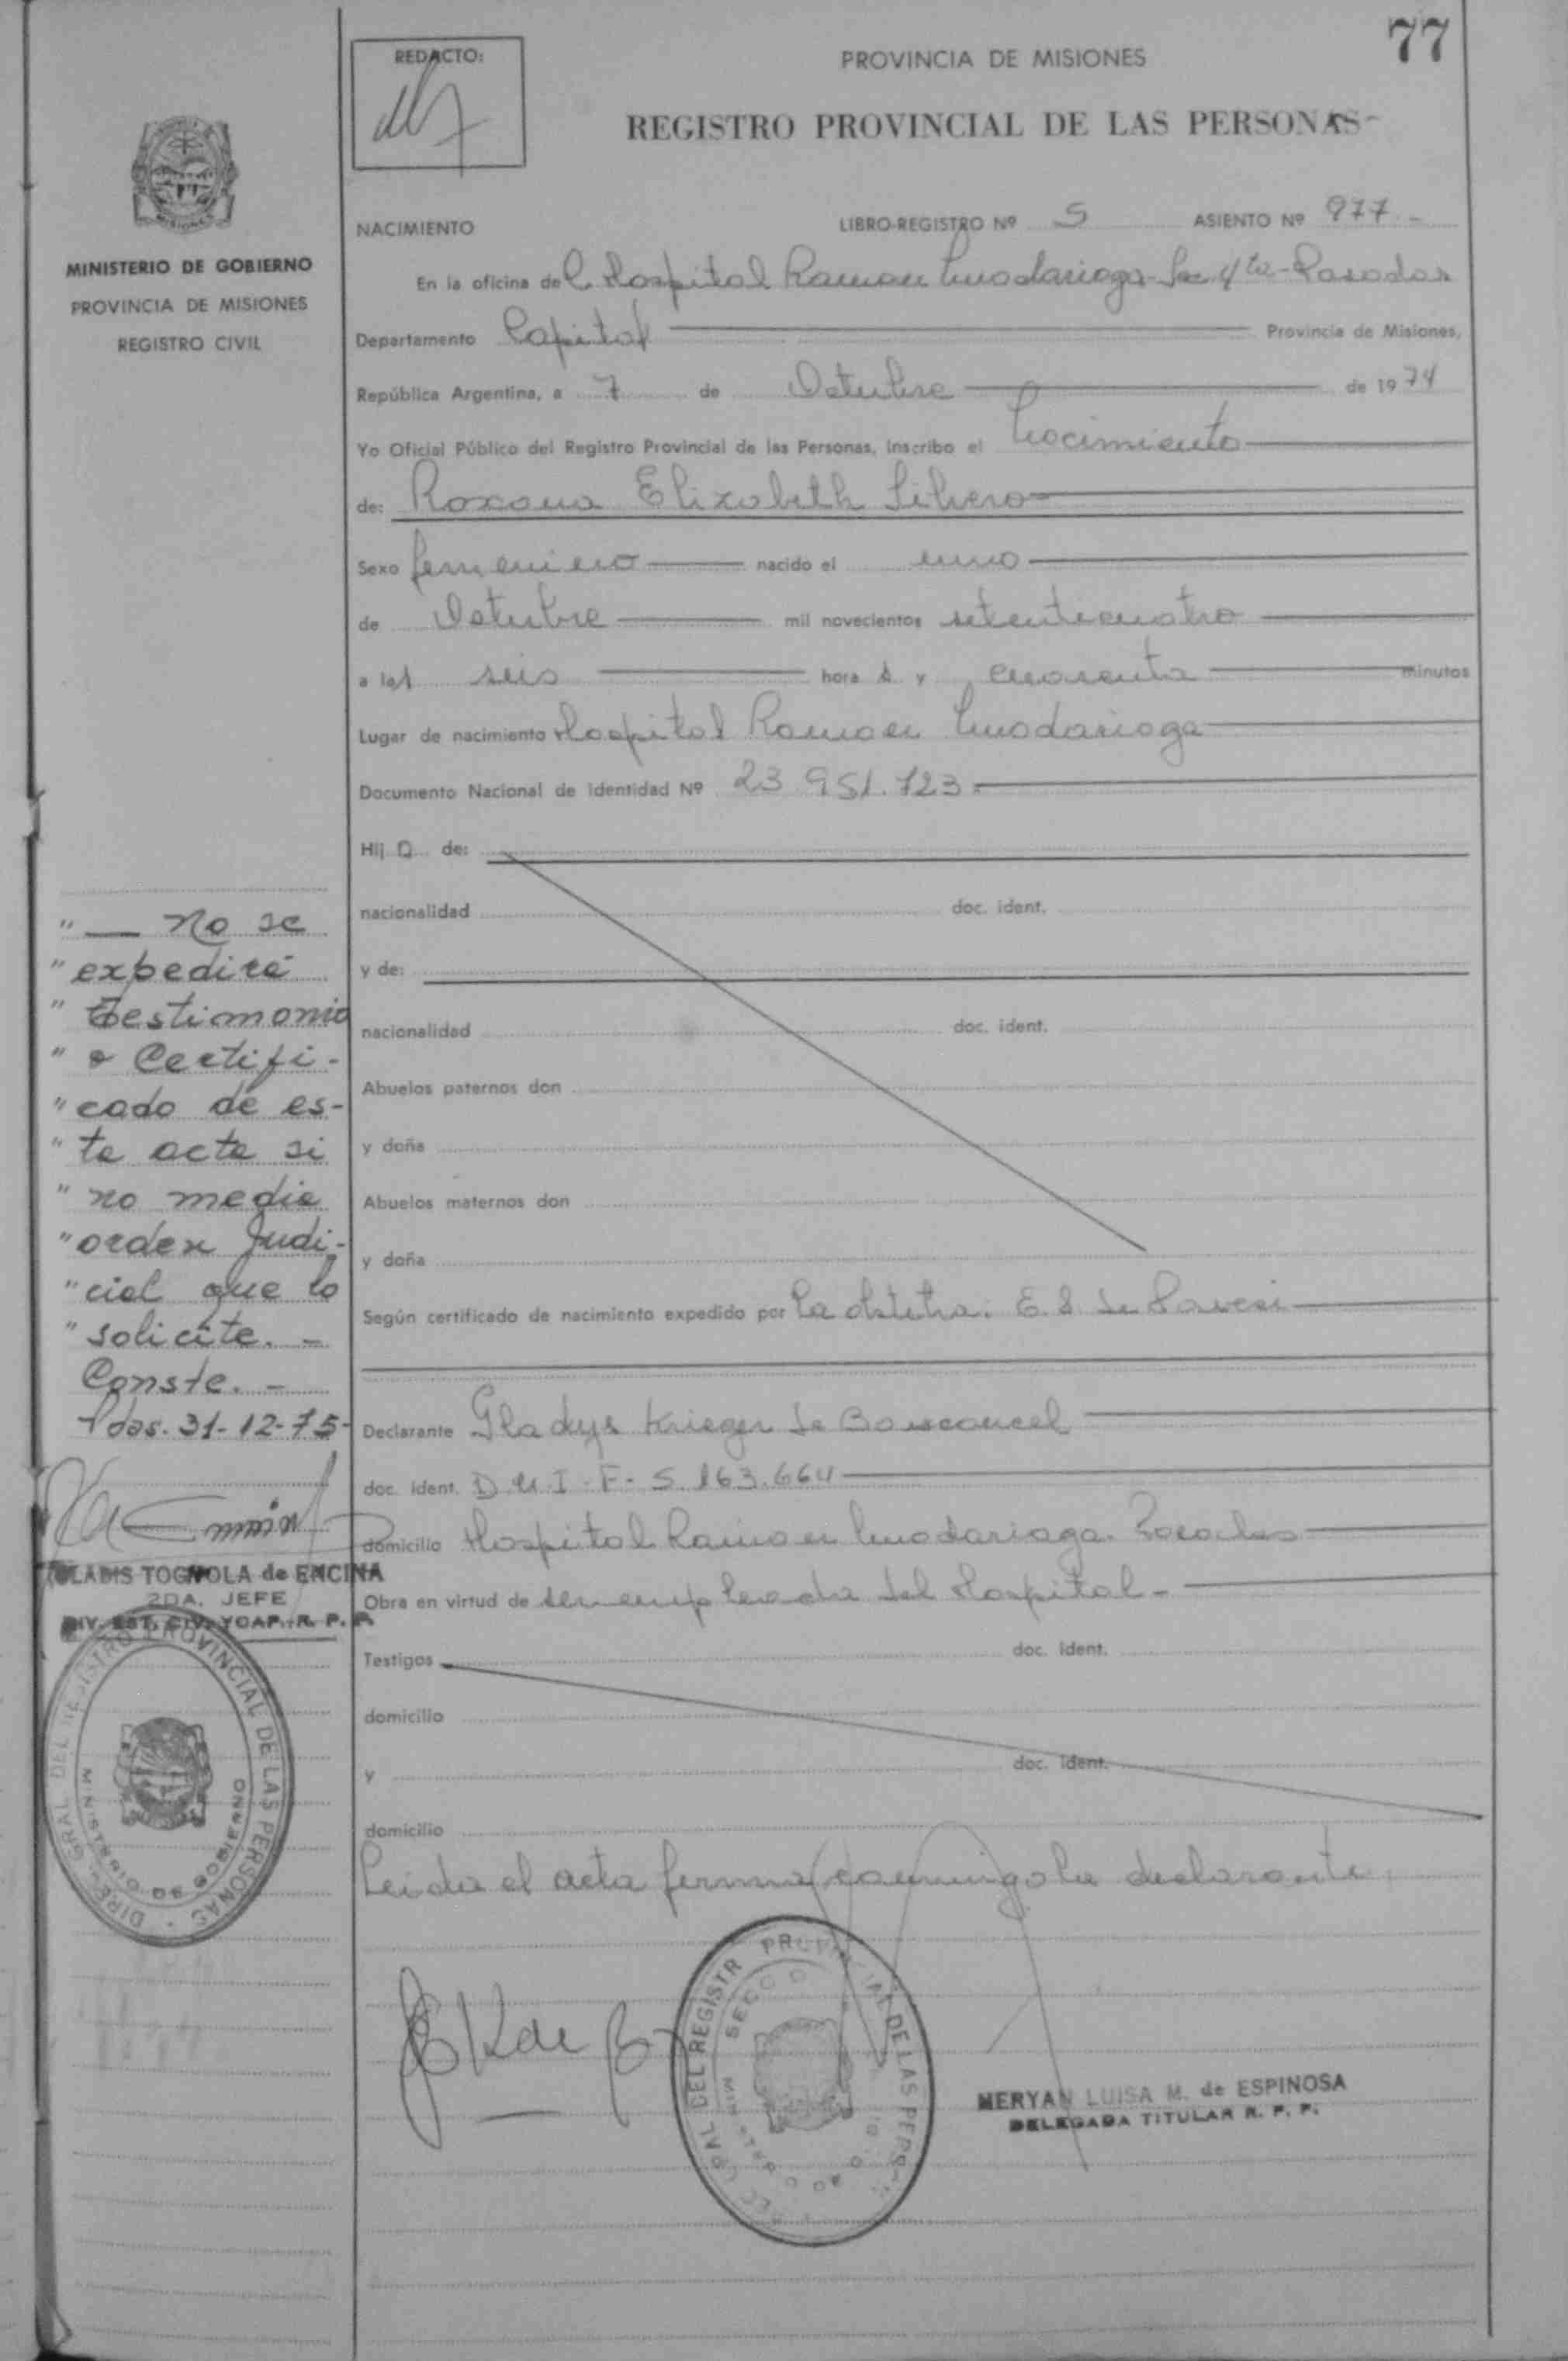 77
REDACTO:
PROVINCIA DE MISIONES
REGISTRO PROVINCIAL DE LAS PERSONAS
NACIMIENTO LIBRO-REGISTRO Nº 5 ASIENTO Nº 977.-
En la oficina de Hospital Ramon Madariaga Sec 4ta - Posadas
Departamento Capital Provincia de Misiones,
República Argentina, a 7 de Octubre de 1974
Yo Oficial Público del Registro Provincial de las Personas, Inscribo el nacimiento
de: Roxana Elizabeth Silvero
Sexo femenino nacido el uno
de Octubre mil novecientos setenticuatro
a las seis horas y cuarenta minutos
Lugar de nacimiento Hospital Ramon Madariaga
Documento Nacional de Identidad Nº 23.951.723.
Hij a de:
nacionalidad doc. ident.
y de:
nacionalidad doc. ident.
Abuelos paternos don
y doña
Abuelos maternos don
y doña
Según certificado de nacimiento expedido por la obstetra. E. S. de
Declarante Gladys Krieger de
doc. ident. D.N.I-F-5.163.664
domicilio Hospital Ramon Madariaga. Posadas
Obra en virtud de ser empleada del Hospital-
Testigos doc. ident.
domicilio
y doc. ident.
domicilio
Leida el acta firma conmigo la declarante.
MERYAN LUISA M. de ESPINOSA
DELEGADA TITULAR R. P. P.
MINISTERIO DE GOBIERNO
PROVINCIA DE MISIONES
REGISTRO CIVIL
"— No se
"expedirá
"Testimonio
"o Certifi-
"cado de es-
"ta acta si
"no media
"orden Judi-
"cial que lo
"solicite.-
Conste.-
Pdas. 31-12-75-
GLADIS TOGNOLA de ENCINA
2DA. JEFE
DIV. EST. CIV. YCAP. R. P. P.
DIRE. GRAL DEL REGISTRO PROVINCIAL DE LAS PERSONAS
MINISTERIO DE GOBIERNO